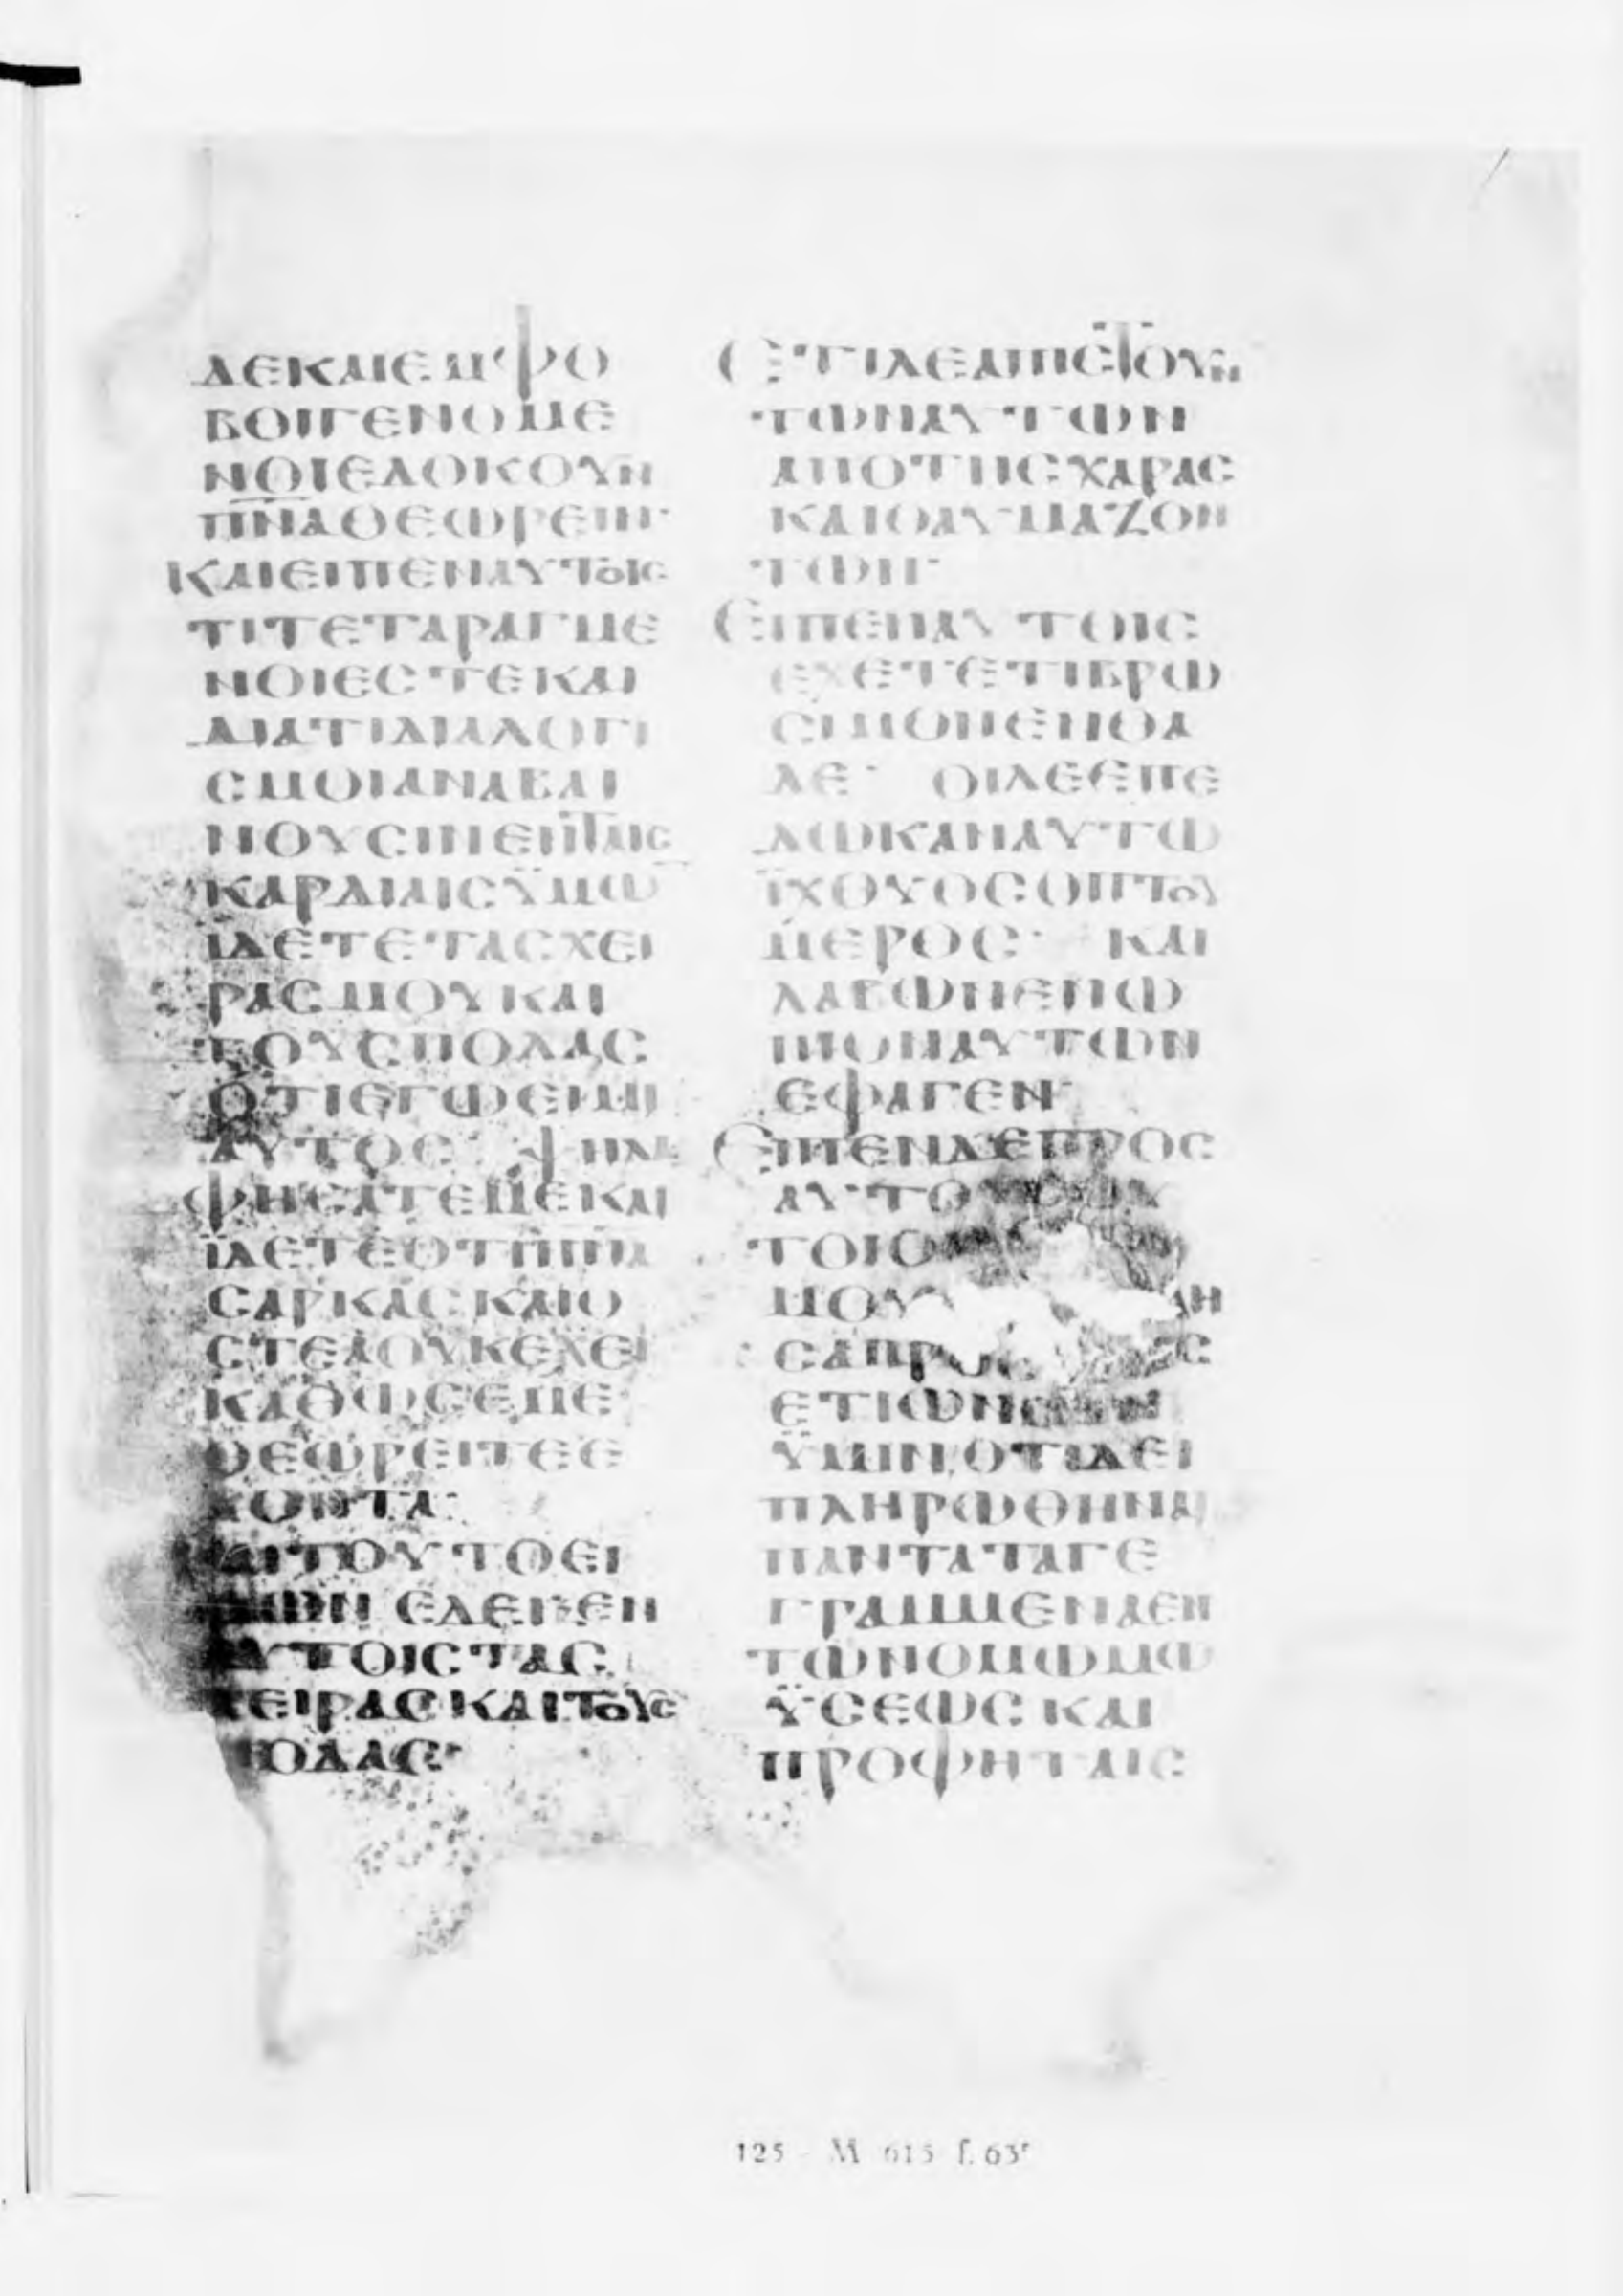 ΔΕΚΑΙΕΜΦΟ
ΒΟΙΓΕΝΟΜΕ
ΝΟΙΕΔΟΚΟΥΝ
ΠΝΑΘΕΩΡΕΙΝ·
ΚΑΙΕΙΠΕΝΑΥΤΟΙC
ΤΙΤΕΤΑΡΑΓΜΕ
ΝΟΙΕCΤΕΚΑΙ
ΔΙΑΤΙΔΙΑΛΟΓΙ
CΜΟΙΑΝΑΒΑΙ
ΝΟΥCΙΝΕΝΤΑΙC
ΚΑΡΔΙΑΙCΫΜΩ̅
ΪΔΕΤΕΤΑCΧΕΙ
ΡΑCΜΟΥΚΑΙ
ΤΟΥCΠΟΔΑC
ΟΤΙΕΓΩΕΙΜΙ
ΑΥΤΟC· ΨΗΛΑ
ΦΗCΑΤΕΜΕΚΑΙ
ΪΔΕΤΕΟΤΙΠΝΑ
CΑΡΚΑCΚΑΙΟ
CΤΕΑΟΥΚΕΧΕΙ
ΚΑΘΩCΕΜΕ
ΘΕΩΡΕΙΤΕΕ
ΧΟΝΤΑ·
ΚΑΙΤΟΥΤΟΕΙ
ΠΩΝ ΕΔΕΙΞΕΝ
ΑΥΤΟΙCΤΑC
ΧΕΙΡΑCΚΑΙΤΟΥC
ΠΟΔΑC·
ΕΤΙΔΕΑΠΙCΤΟΥΝ
ΤΩΝΑΥΤΩΝ
ΑΠΟΤΗCΧΑΡΑC
ΚΑΙΘΑΥΜΑΖΟΝ
ΤΩΝ·
ΕΙΠΕΝΑΥΤΟΙC
ΕΧΕΤΕΤΙΒΡΩ
CΙΜΟΝΕΝΘΑ
ΔΕ· ΟΙΔΕΕΠΕ
ΔΩΚΑΝΑΥΤΩ
ΪΧΘΥΟCΟΠΤΟΥ
ΜΕΡΟC· ΚΑΙ
ΛΑΒΩΝΕΝΩ
ΠΙΟΝΑΥΤΩΝ
ΕΦΑΓΕΝ·
ΕΙΠΕΝΔΕΠΡΟC
ΑΥΤΟ
ΤΟΙΟ
ΜΟΥ ΛΗ
CΑΠΡΟ C
ΕΤΙΩΝ
ΫΜΙΝΟΤΙΔΕΙ
ΠΛΗΡΩΘΗΝΑΙ
ΠΑΝΤΑΤΑΓΕ
ΓΡΑΜΜΕΝΑΕΝ
ΤΩΝΟΜΩΜΩ
ΫCΕΩCΚΑΙ
ΠΡΟΦΗΤΑΙC
125 - M 615 f. 63r